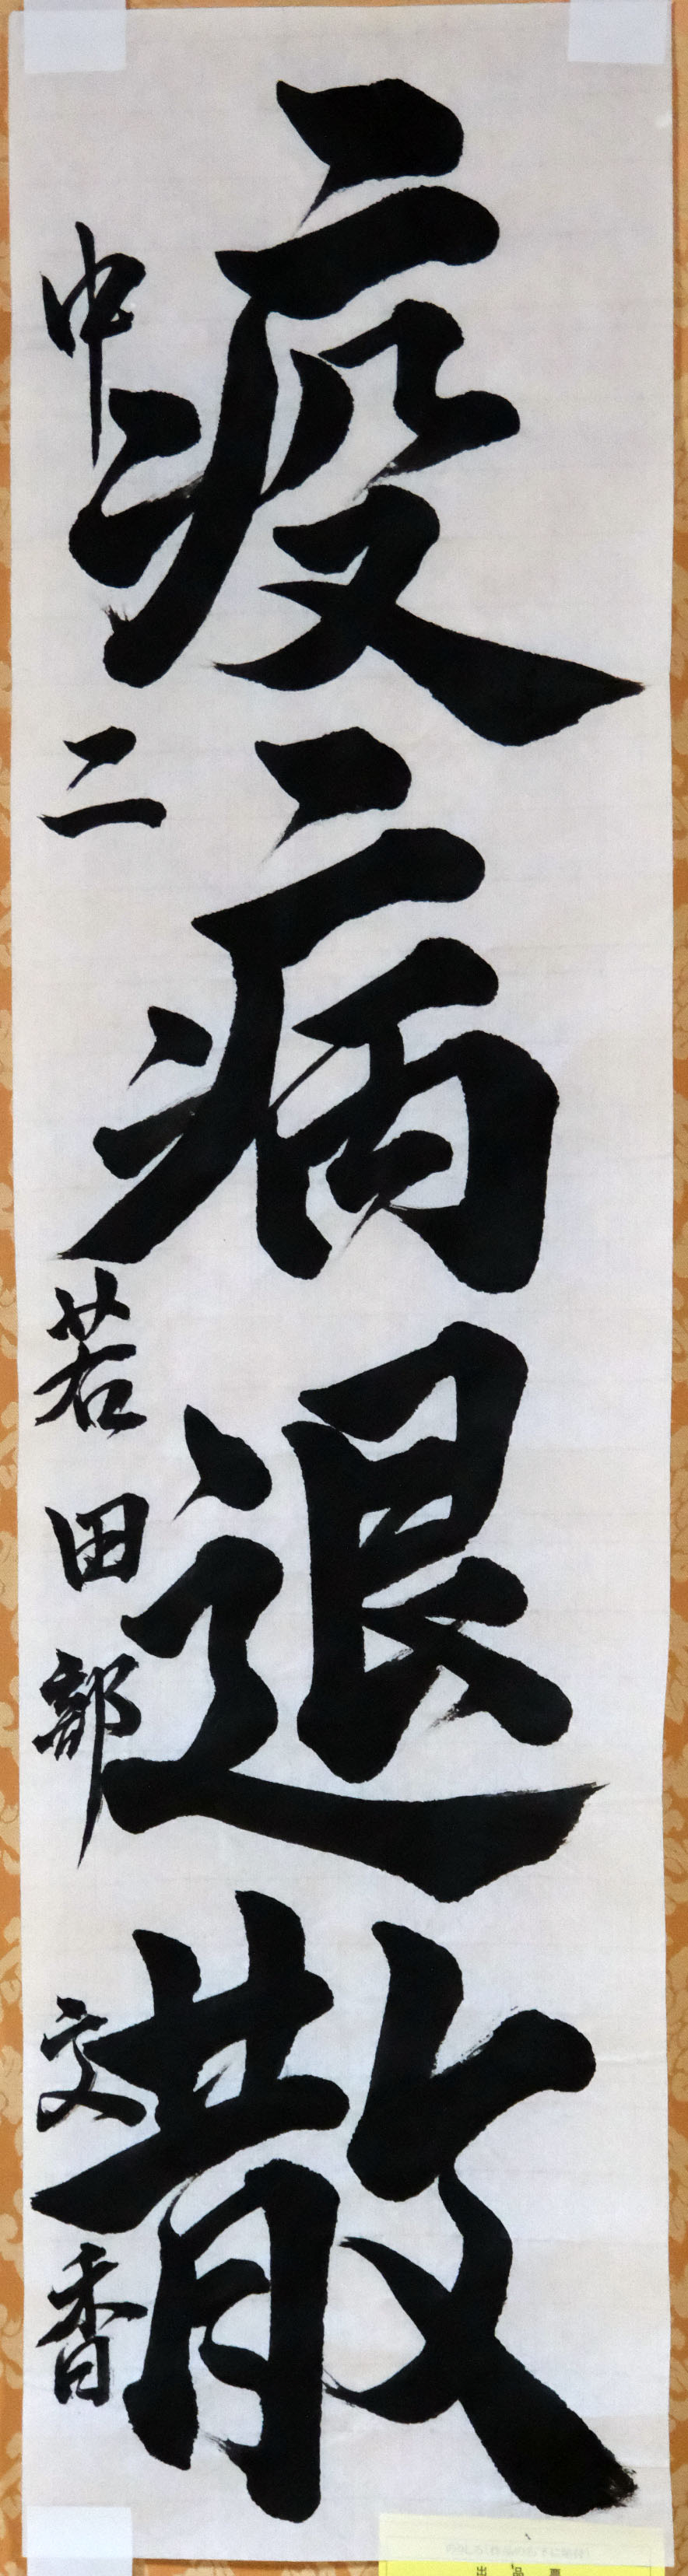 疫病退散
中二 若田部 文香
出品票